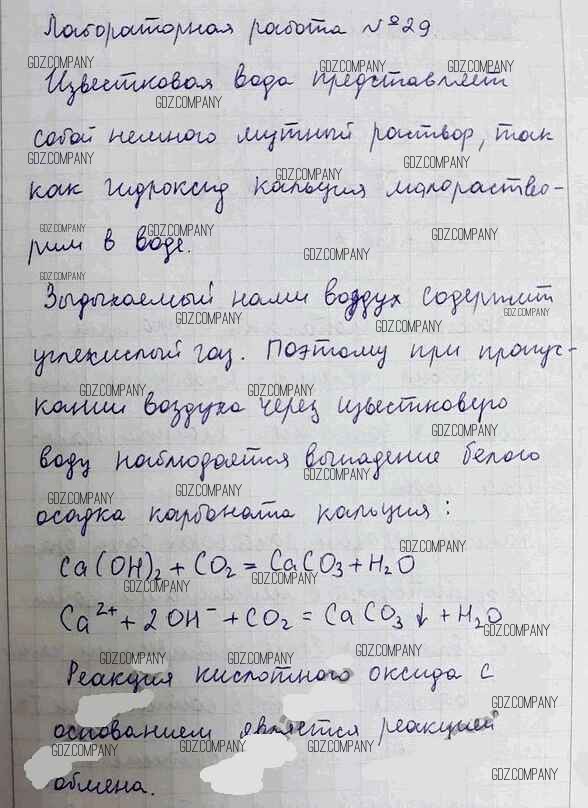 Лабораторная работа №29.
Известковая вода представляет
собой немного мутный раствор, так
как гидроксид кальция малораство-
рим в воде.
Выдыхаемый нами воздух содержит
углекислый газ. Поэтому при пропус-
кании воздуха через известковую
воду наблюдается выпадение белого
осадка карбоната кальция:
Ca(OH)₂ + CO₂ = CaCO₃ + H₂O
Ca²⁺ + 2OH⁻ + CO₂ = CaCO₃↓ + H₂O
Реакция кислотного оксида с
основанием является реакцией
обмена.
GDZ.COMPANY